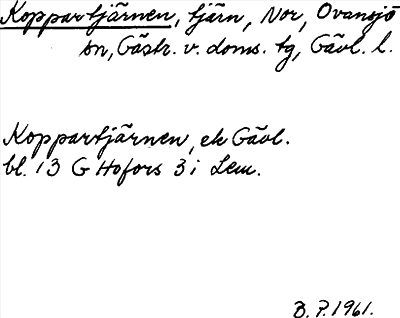 Koppartjärnen, tjärn, Nor, Ovansjö
sn, Gästr. v. doms. tg, Gävl. l.
Koppartjärnen, ek Gävl.
bl. 13 G Hofors 3 i Lem.
B. P. 1961.